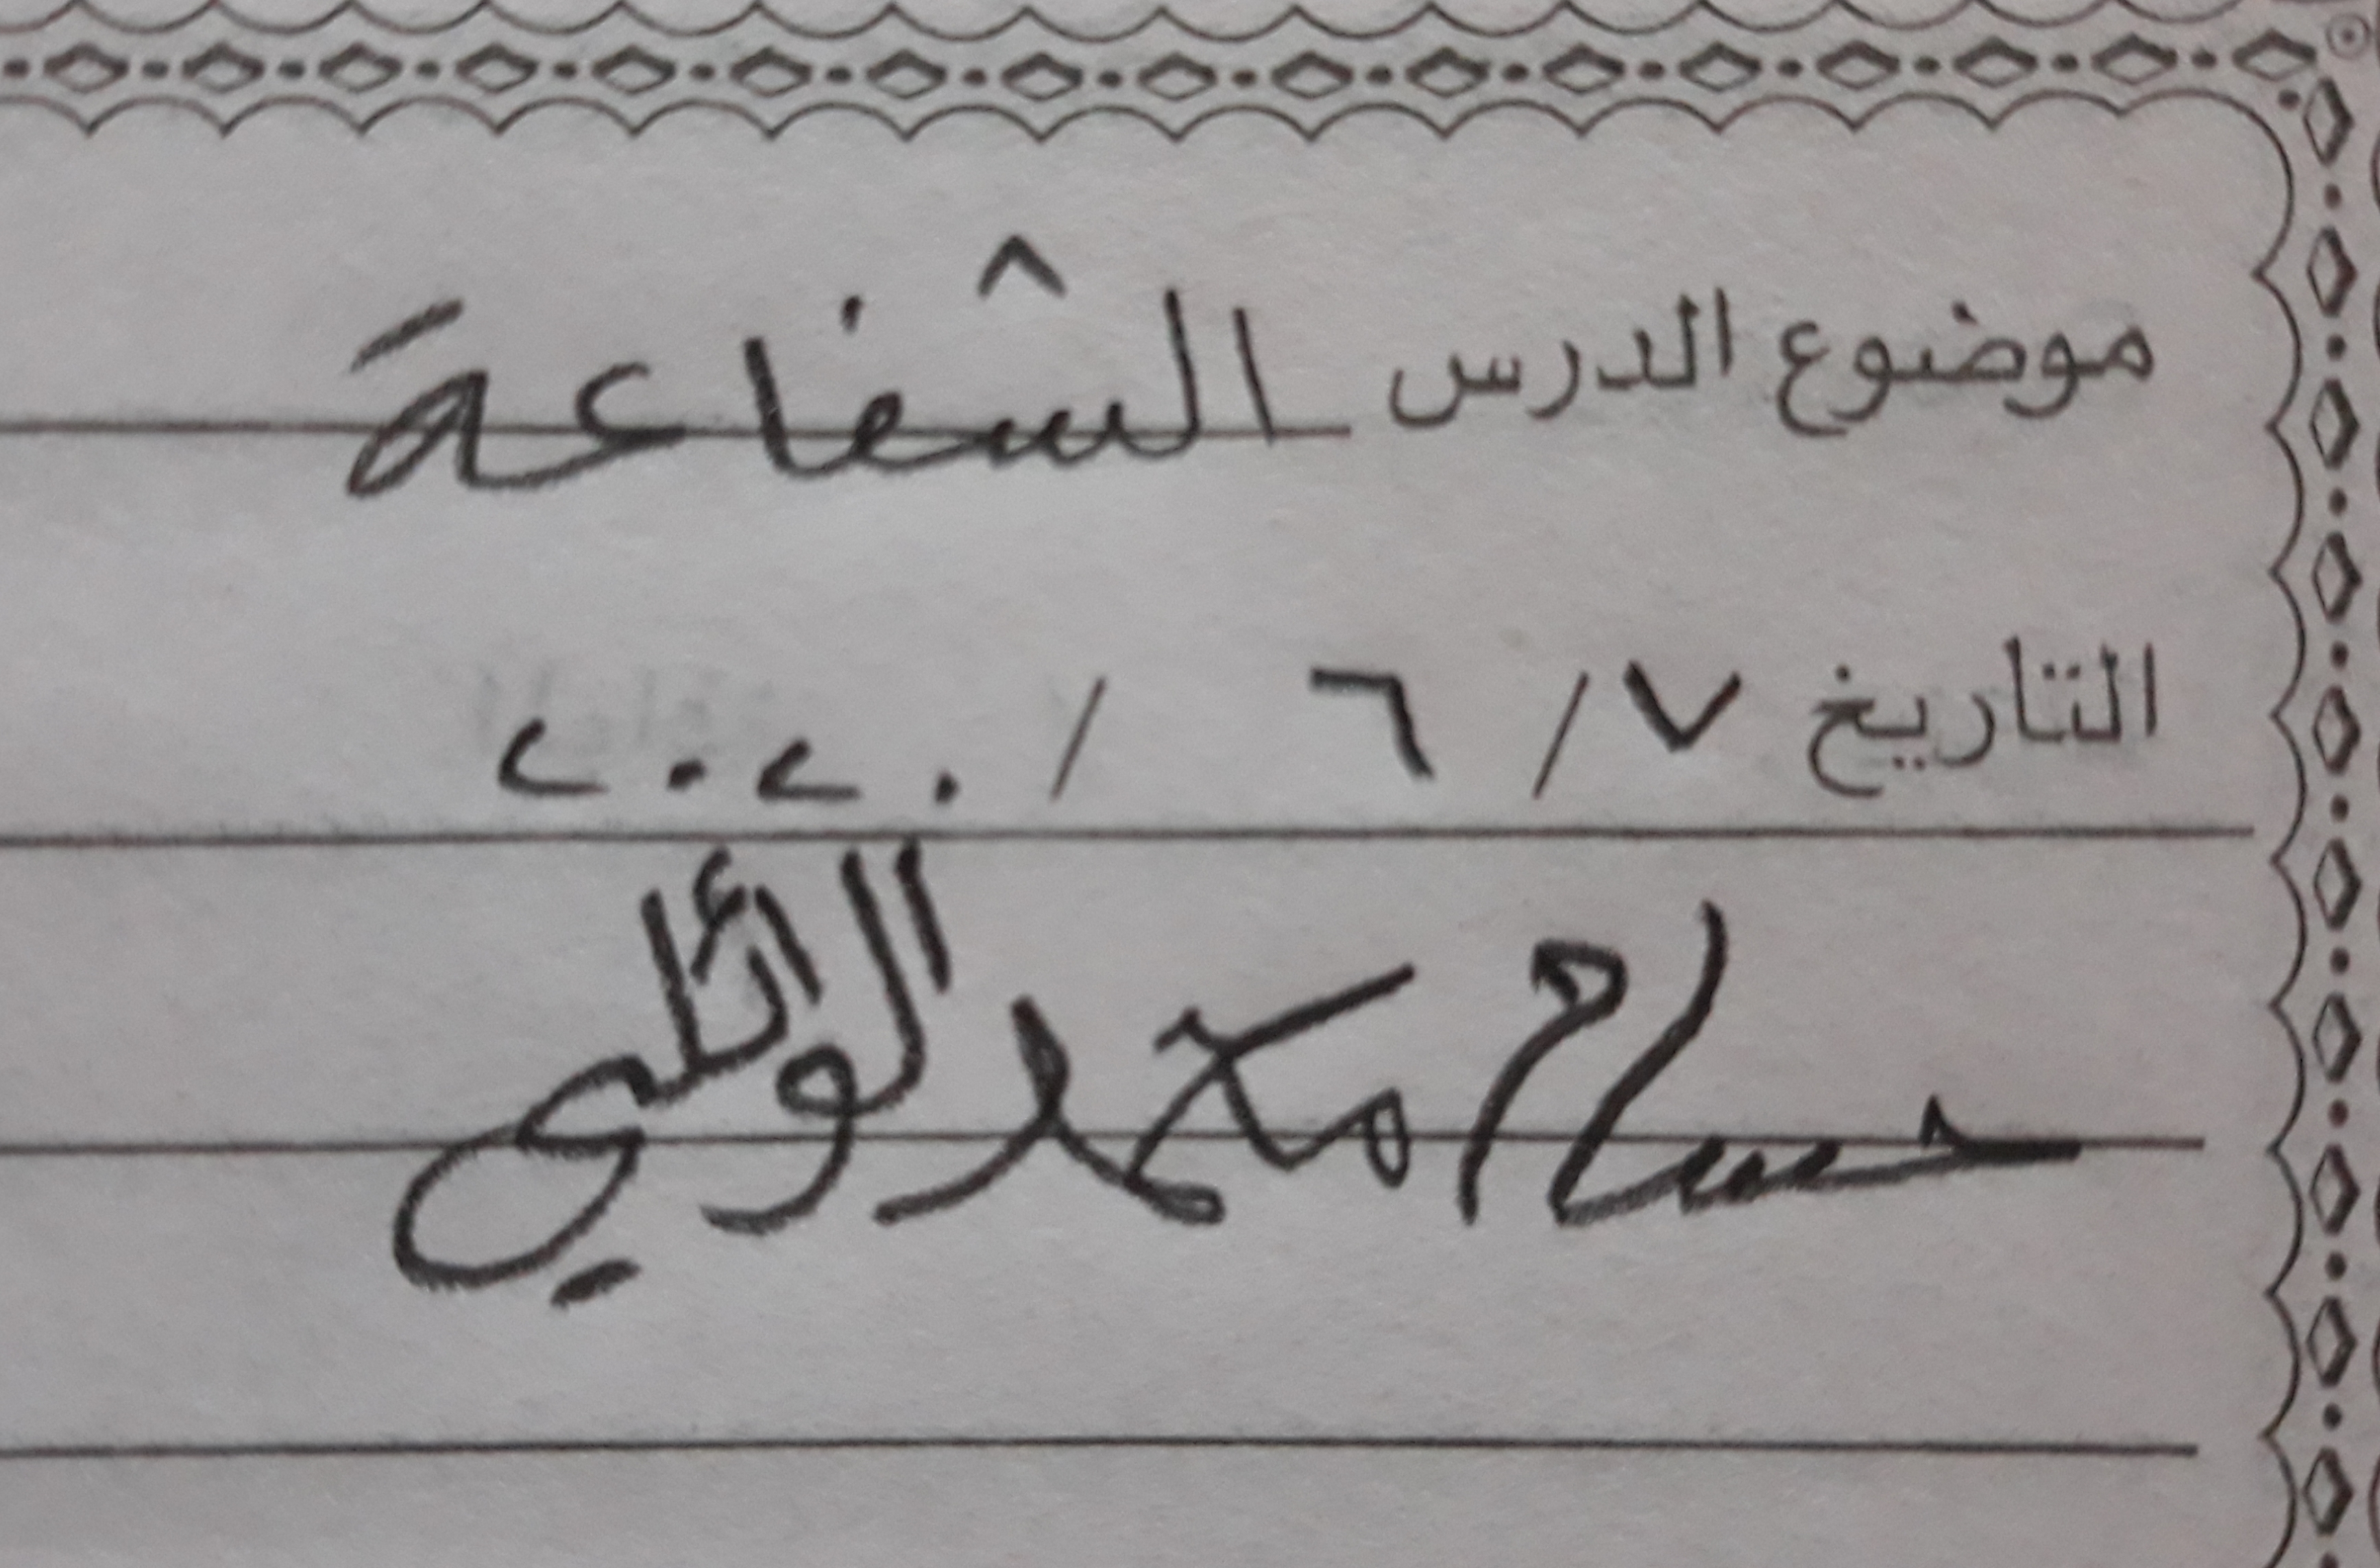 موضوع الدرس الشفاعة
التاريخ ٧/ ٦ / ٢٠٢٠
حسام محمد الوائلي